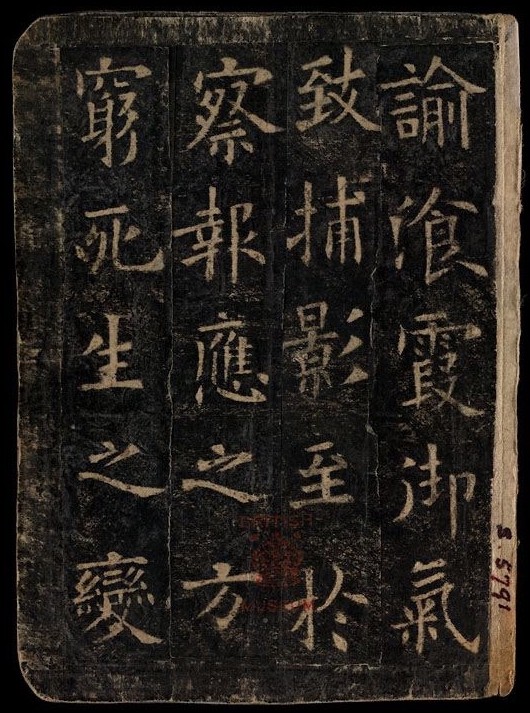 諭飡霞御氣
致捕影至於
察報應之方
窮死生之變
S. 5791
BRITISH
MUSEUM